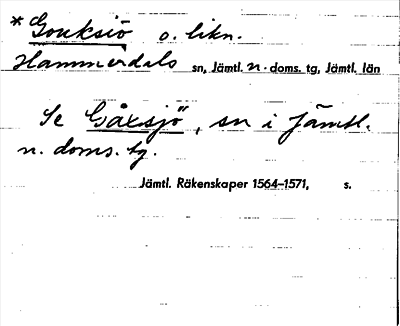 * Gouksiö o. likn.
Hammerdals sn, Jämtl. n. doms. tg, Jämtl. län
Se Gåxsjö, sn i Jämtl.
n. doms. tg.
Jämtl. Räkenskaper 1564–1571, s.